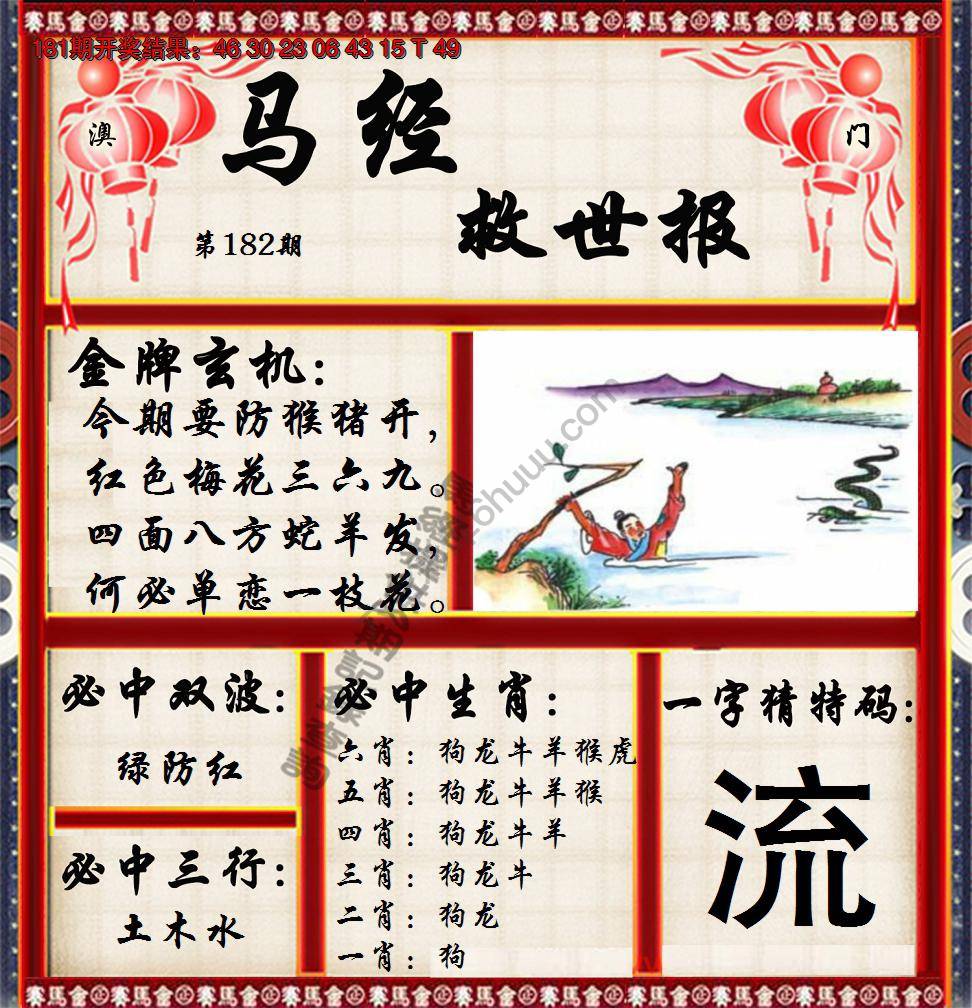 赛馬會
181期开奖结果：46 30 23 06 43 15 T 49
澳
门
马经
救世报
第182期
金牌玄机：
今期要防猴猪开，
红色梅花三六九。
四面八方蛇羊发，
何必单恋一枝花。
必中双波：
绿防红
必中三行：
土木水
必中生肖：
六肖：狗龙牛羊猴虎
五肖：狗龙牛羊猴
四肖：狗龙牛羊
三肖：狗龙牛
二肖：狗龙
一肖：狗
一字猜特码：
流